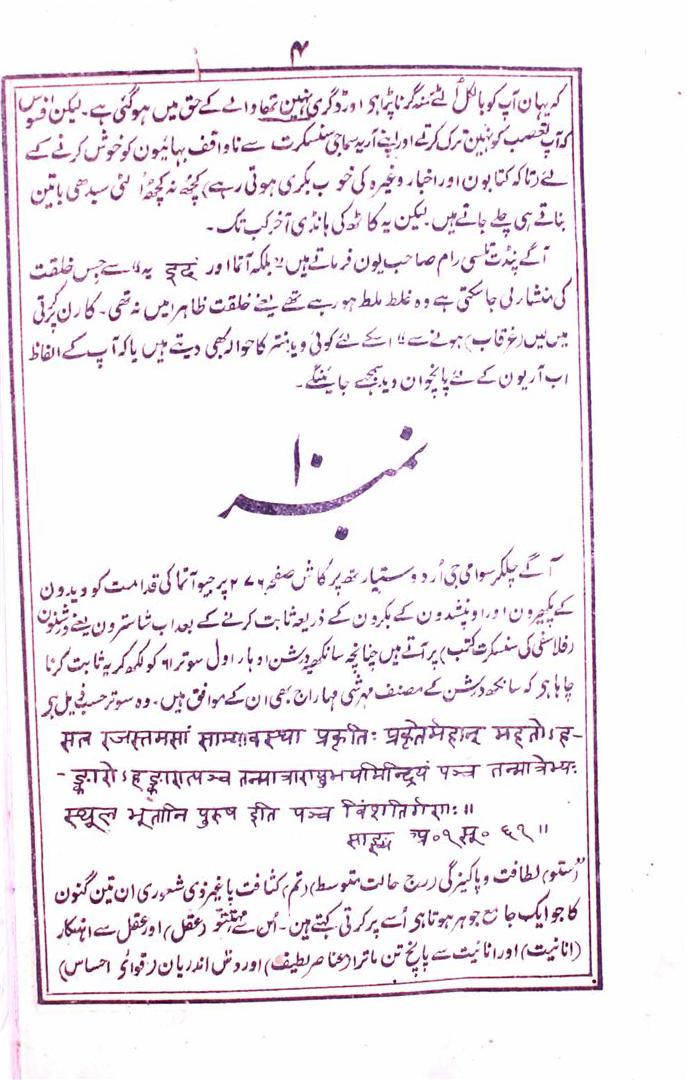 ۴
کہ یہان آپ کو بالکل الٹے منہ گرنا پڑا ہی اور ڈگری نہین تھا والے کے حق میں ہو گئی ہے۔ لیکن افسوس
کہ آپ تعصب کو نہین ترک کرتے اور اپنے آریہ سماجی سنسکرت سے ناواقف بہائیون کو خوش کرنے کے
لئے (تاکہ کتابون اور اخبار وغیرہ کی خوب بکری ہوتی رہے) کچھ نہ کچھ اُلٹی سیدھی باتین
بناتے ہی چلے جاتے ہیں۔ لیکن یہ کاٹھ کی ہانڈی آخر کب تک۔
آگے پنڈت تلسی رام صاحب یون فرماتے ہیں " بلکہ آتما اور इदं یہ " سے جس خلقت
کی منشار لی جا سکتی ہے وہ غلط ملط ہو رہے تھے یعنے خلقت ظاہرا میں نہ تھی۔ کارن پرکرتی
میں لیں (غرقاب) ہونے سے " اسکے لئے کوئی وید منتر کا حوالہ بھی دیتے ہیں یا کہ آپ کے الفاظ
اب آریون کے لئے پانچوان وید سمجھے جائینگے۔
نمبر ۱۰
آگے چلکر سوامی جی اُردو ستیارتھ پرکاش صفحہ ۲۷۶ پر جیو آتما کی قدامت کو ویدون
کے پکھیرون اور اوپنشدون کے بکرون کے ذریعہ ثابت کرنے کے بعد اب شاسترون یعنے درشنون
(فلاسفی کی سنسکرت کتب) پر آتے ہیں چنانچہ سانکھیہ درشن ادہیا اول سوتر ۶۱ کو لکھ کر یہ ثابت کرنا
چاہا ہی کہ سانکھ درشن کے مصنف مہرشی مہاراج بھی ان کے موافق ہیں۔ وہ سوتر حسب ذیل ہی
सत्व रजस्तमसां साम्यावस्था प्रकृतिः प्रकृतेर्महान् महतोऽह-
-ङ्कारोऽहङ्कारात्पञ्च तन्मात्राण्युभयमिन्द्रियं पञ्च तन्मात्रेभ्यः
स्थूल भूतानि पुरुष इति पञ्च विंशतिर्गणः॥
साङ्ख्य अ॰ १ सू॰ ६१॥
"(ستو) لطافت و پاکیزگی (رج) حالت متوسط) (تم) کثافت یا غیر ذی شعوری ان تین گنون
کا جو ایک جامع جوہر ہوتا ہی اُسے پرکرتی کہتے ہین۔ اُس سے مہتتو (عقل) اور عقل سے اہنکار
(انانیت) اور انانیت سے پانچ تن ماترا (عناصر لطیف) اور دس اندریان (قوائے احساس)